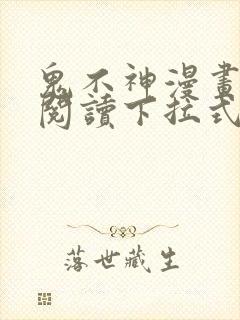 鬼不神漫畫
閱讀下拉式
落世藏生